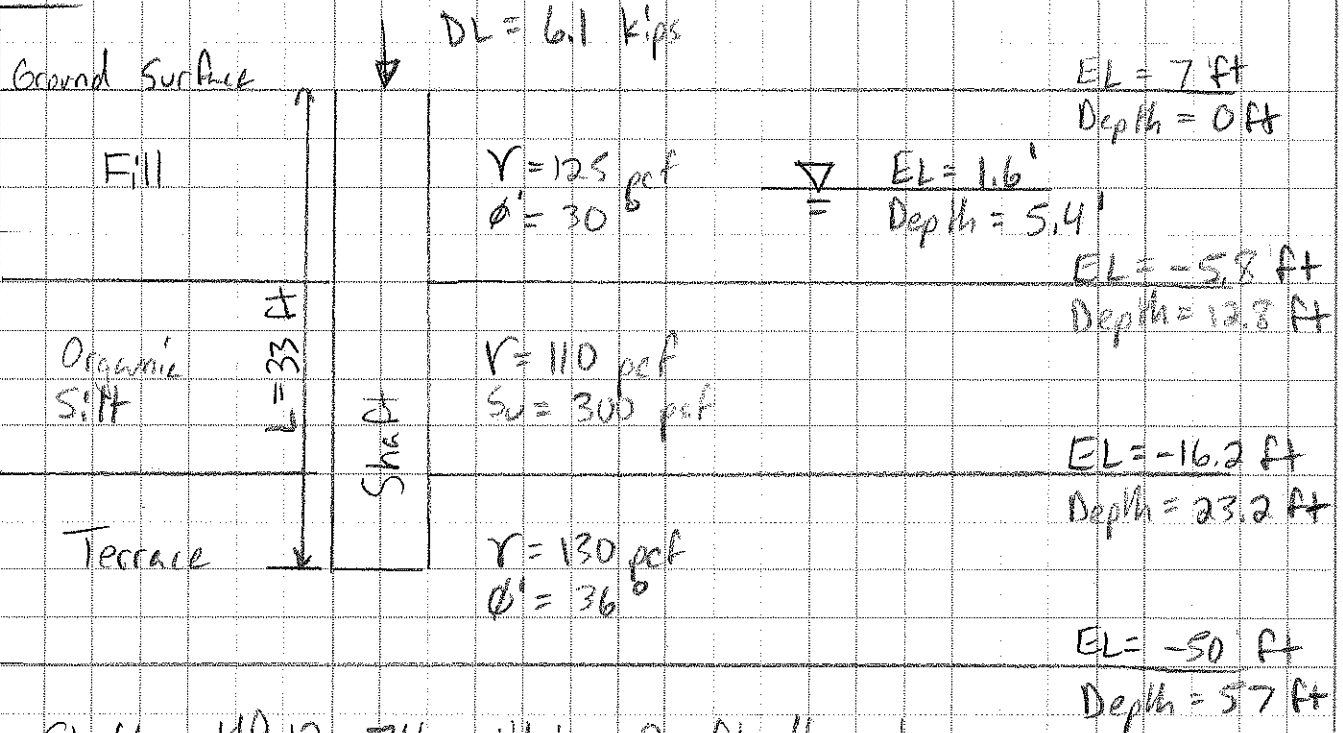 DL = 6.1 kips
Ground Surface
EL = 7 ft
Depth = 0 ft
Fill
γ = 125 pcf
ϕ' = 30°
EL = 1.6'
Depth = 5.4'
EL = -5.8 ft
Depth = 12.8 ft
L = 33 ft
Organic
Silt
γ = 110 pcf
Su = 300 psf
Shaft
EL = -16.2 ft
Depth = 23.2 ft
Terrace
γ = 130 pcf
ϕ' = 36°
EL = -50 ft
Depth = 57 ft